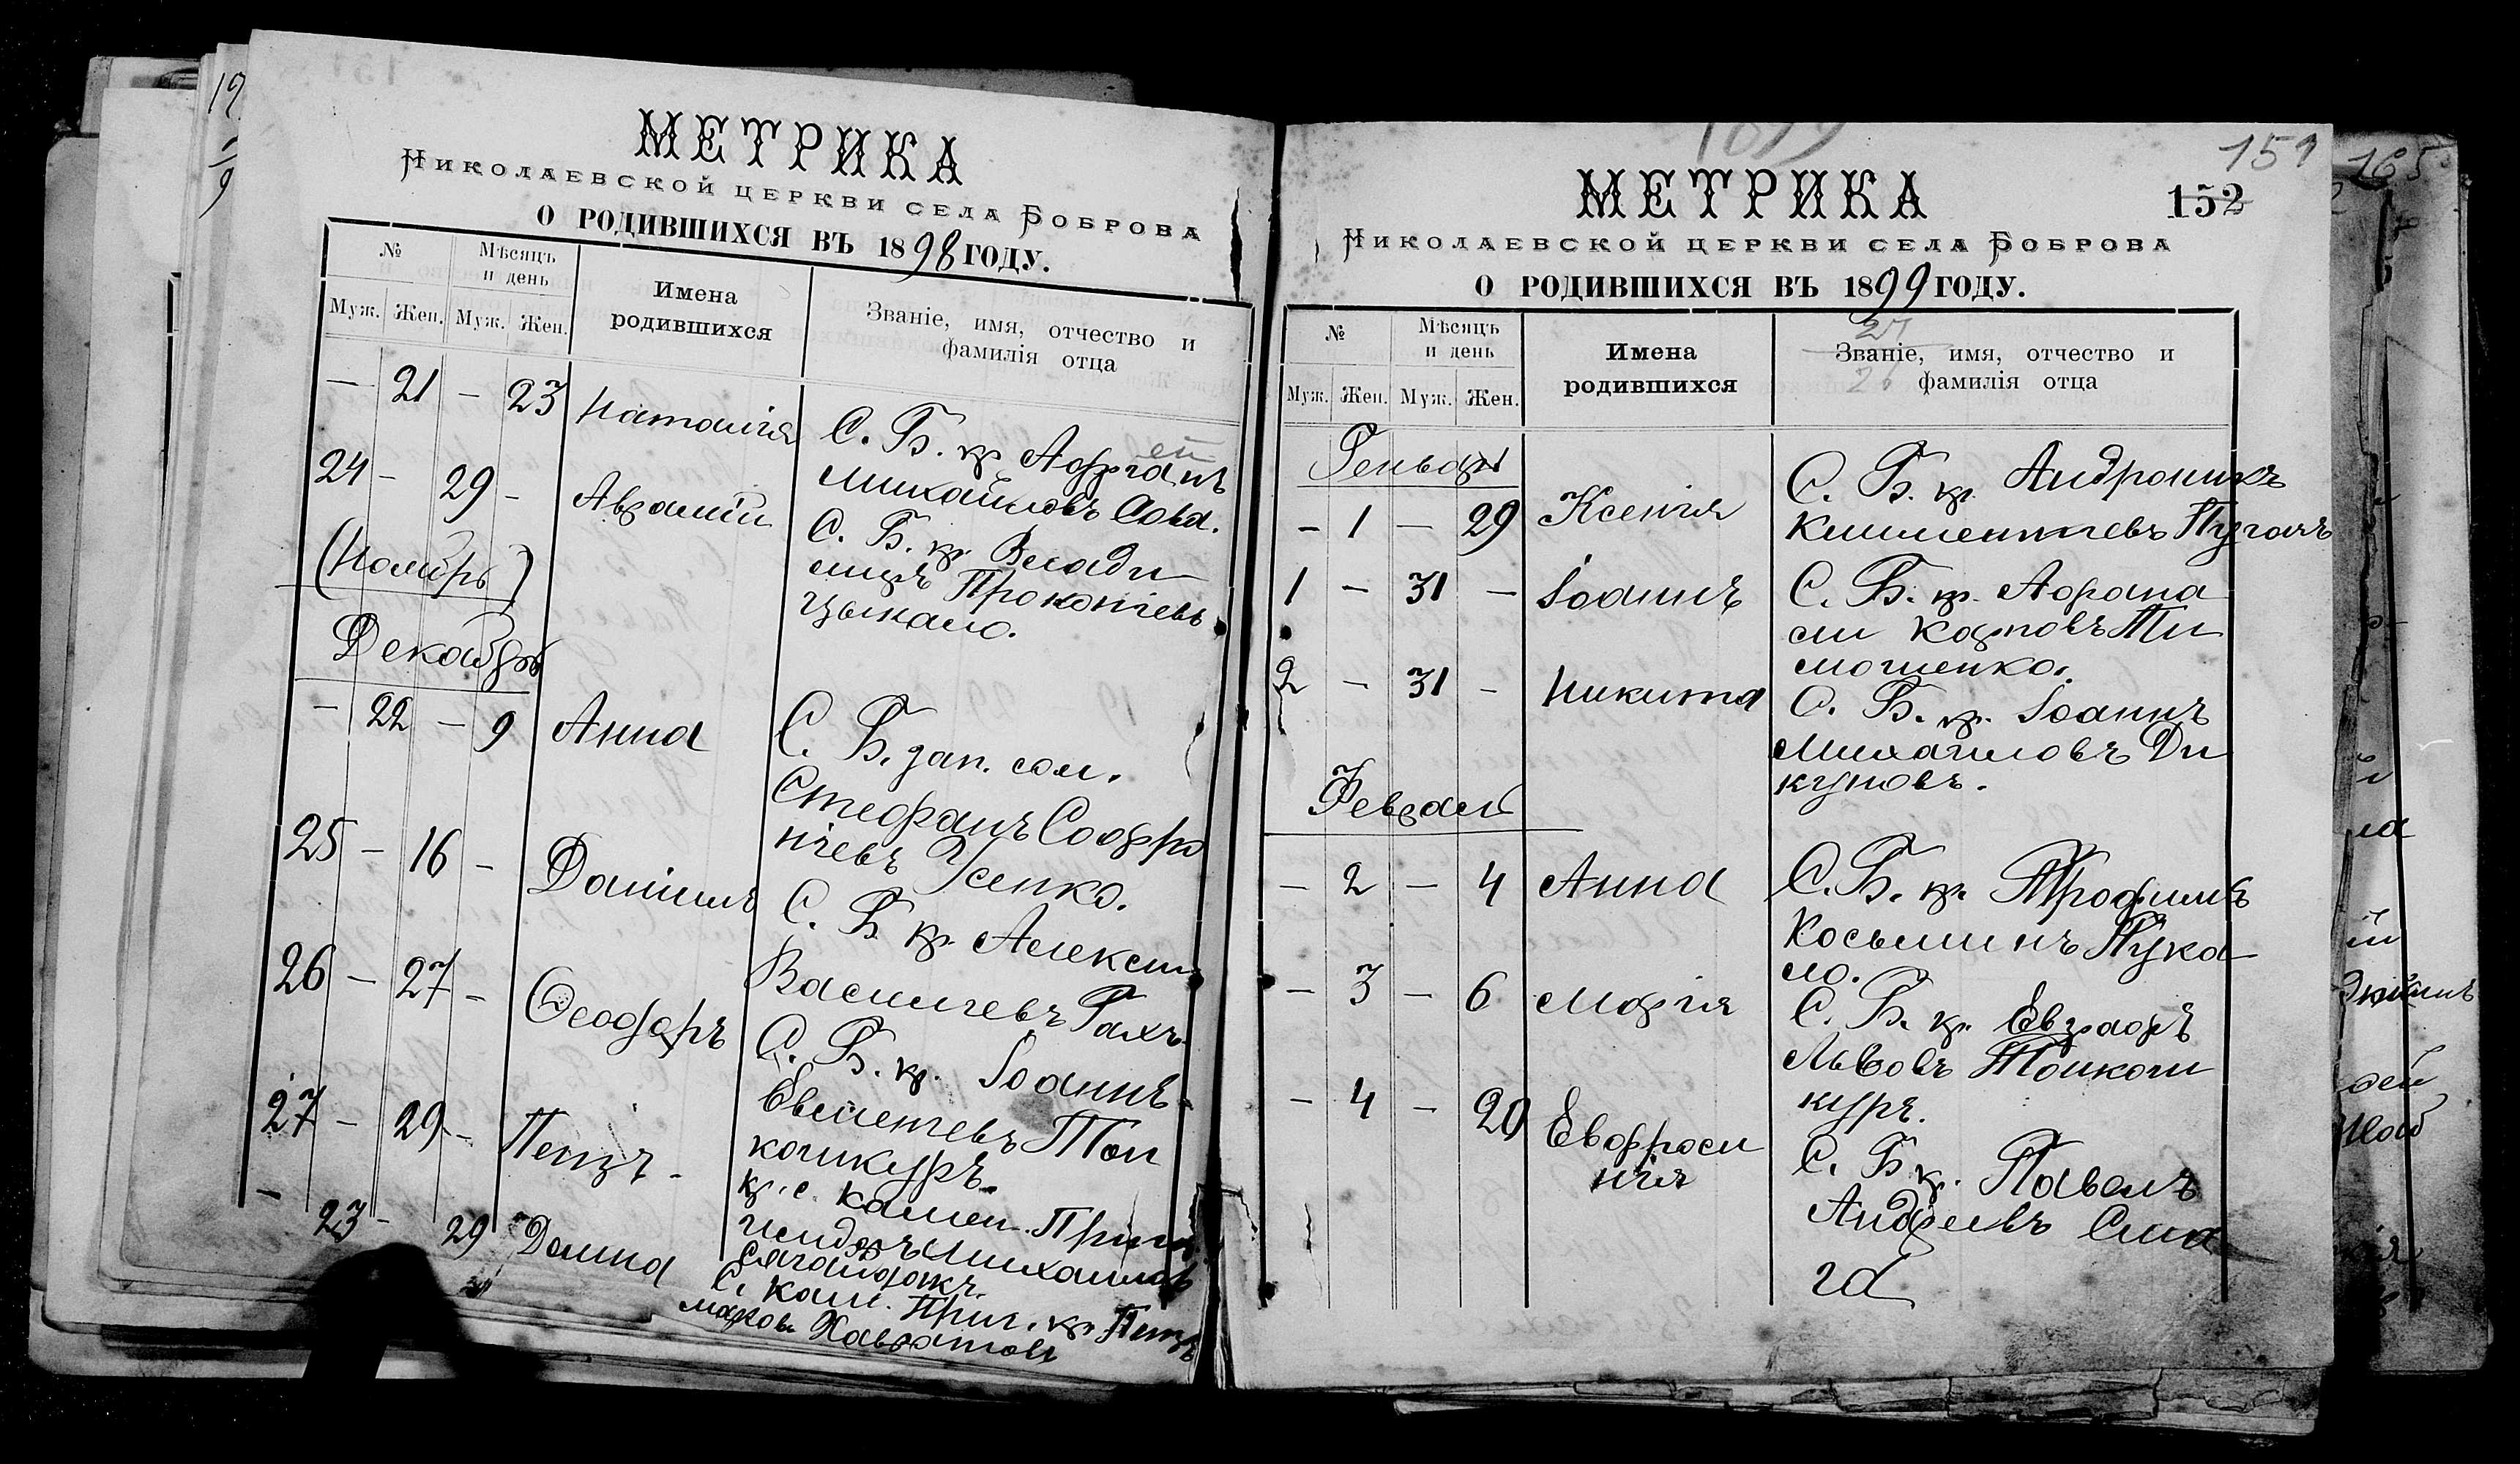 МЕТРИКА
НИКОЛАЕВСКОЙ ЦЕРКВИ СЕЛА БОБРОВА
О РОДИВШИХСЯ ВЪ 1898 ГОДУ.
№
Мѣсяцъ и день
Имена родившихся
Званіе, имя, отчество и
фамилія отца
Муж. Жен. Муж. Жен.
— 21 — 23 Наталія С. Б. кр.
Михайловъ Сова.
24 — 29 — Аврамій С. Б. кр. Влади
миръ Прокопіевъ
Цыкало.
(Ноябрь)
Декабрь
— 22 — 9 Анна С. Б. зап. сол.
Стефанъ Софро
ніевъ Усенко.
25 — 16 — Даніилъ С. Б. кр. Алексій
Василіевъ Рахъ.
26 — 27 — Ѳеодоръ С. Б. кр. Іоаннъ
Евменіевъ Тол
кошкуръ.
27 — 29 — Петръ — кр. с. Камен. Приг.
Исидоръ Михаиловъ
— 23 — 29 Домна С. Кам. Приг. кр. Петръ
Марковъ
МЕТРИКА
151
152
НИКОЛАЕВСКОЙ ЦЕРКВИ СЕЛА БОБРОВА
О РОДИВШИХСЯ ВЪ 1899 ГОДУ.
№
Мѣсяцъ и день
Имена родившихся
Званіе, имя, отчество и
фамилія отца
Муж. Жен. Муж. Жен.
Генварь
— 1 — 29 Ксенія С. Б. кр. Андроникъ
Климентіевъ Пугачъ
1 — 31 — Іоаннъ С. Б. кр. Афана
сій Карповъ Ти
мошенко.
2 — 31 — Никита С. Б. кр. Іоаннъ
Михаиловъ Ди
куновъ.
Февраль
— 2 — 4 Анна С. Б. кр. Трофимъ
Косьминъ Пука
ло.
— 3 — 6 Марія С. Б. кр. Евграфъ
Львовъ Толкош
куръ.
— 4 — 20 Евфроси
нія
С. Б. кр. Павелъ
Андреевъ Сма
га
165